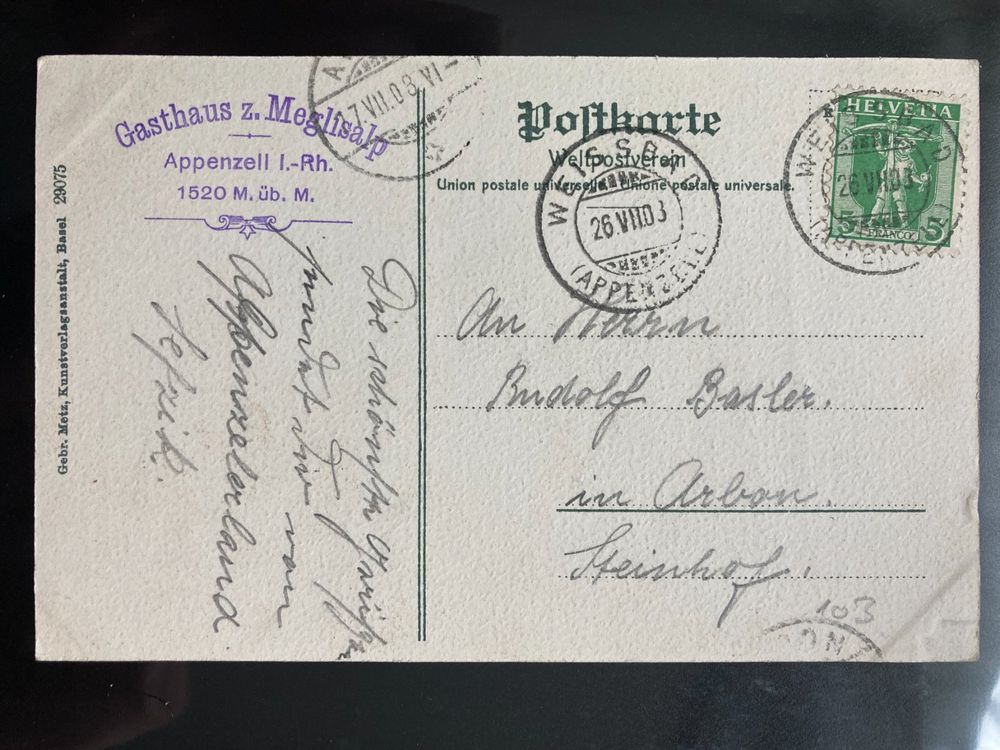 Gasthaus z. Meglisalp
Appenzell I.-Rh.
1520 M. üb. M.
Gebr. Metz, Kunstverlagsanstalt, Basel 29075
Die schönste Grüsse
sendet dir von
Appenzelerland
7.VII.08 VI-
Postkarte
Weltpostverein
Union postale universelle. Unione postale universale.
WEISSBAD
26 VII.03
(APPENZELL)
HELVETIA
5 FRANCO 5
WEISSBAD
26 VII.03
(APPENZELL)
An Herrn
Rudolf Basler.
in Arbon.
Steinhof.
103
ON